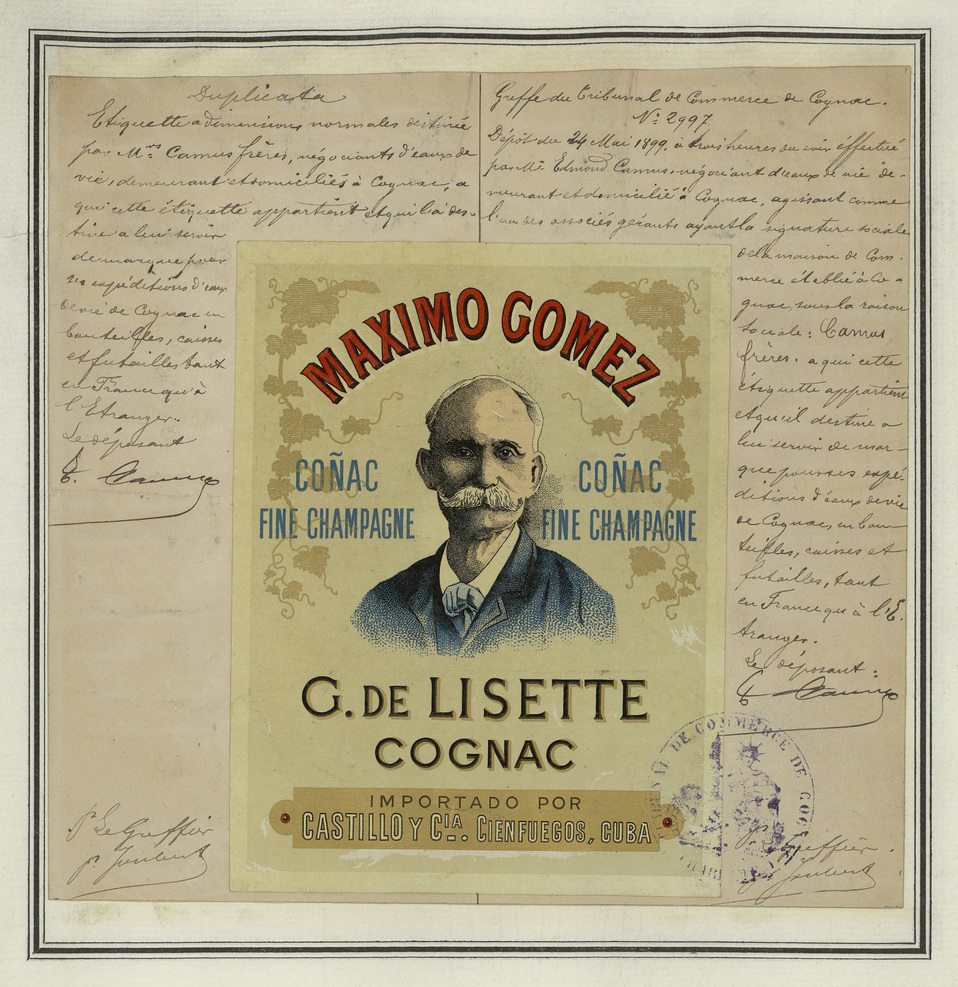 Duplicata
Etiquette a dimensions normales destinée
par Mrs Camus frères, négociants d'eaux de
vie, demeurant et domiciliés à Cognac, a
qui cette étiquette appartient et qui l'a des-
tine a leur servir
de marque pour
ses expéditions d'eaux
de vie de Cognac en
bouteilles, caisses
et futailles tant
en France qu'à
l'Etranger.
Le déposant
E. Camus
Pr Le Greffier
P. Joubert
Greffe du Tribunal de Commerce de Cognac.
No 2997
Dépôt du 24 Mai 1899, à trois heures du soir effectué
par Mr Edmond Camus, négociant d'eaux de vie de-
meurant et domicilié à Cognac, agissant comme
l'un des associés gérants ayant la signature sociale
de la maison de Com-
merce établie à Co-
gnac, sous la raison
sociale: Camus
frères. a qui cette
étiquette appartient
et qu'il destine a
lui servir de mar-
que pour ses expé-
ditions d'eaux de vie
de Cognac, en bou-
teilles, caisses et
futailles, tant
en France qu'à l'E-
tranger.
Le déposant:
E. Camus
Greffier.
Joubert
MAXIMO GOMEZ
COÑAC
FINE CHAMPAGNE
COÑAC
FINE CHAMPAGNE
G. DE LISETTE
COGNAC
IMPORTADO POR
CASTILLO Y CIA. CIENFUEGOS, CUBA
DE COMMERCE DE COG